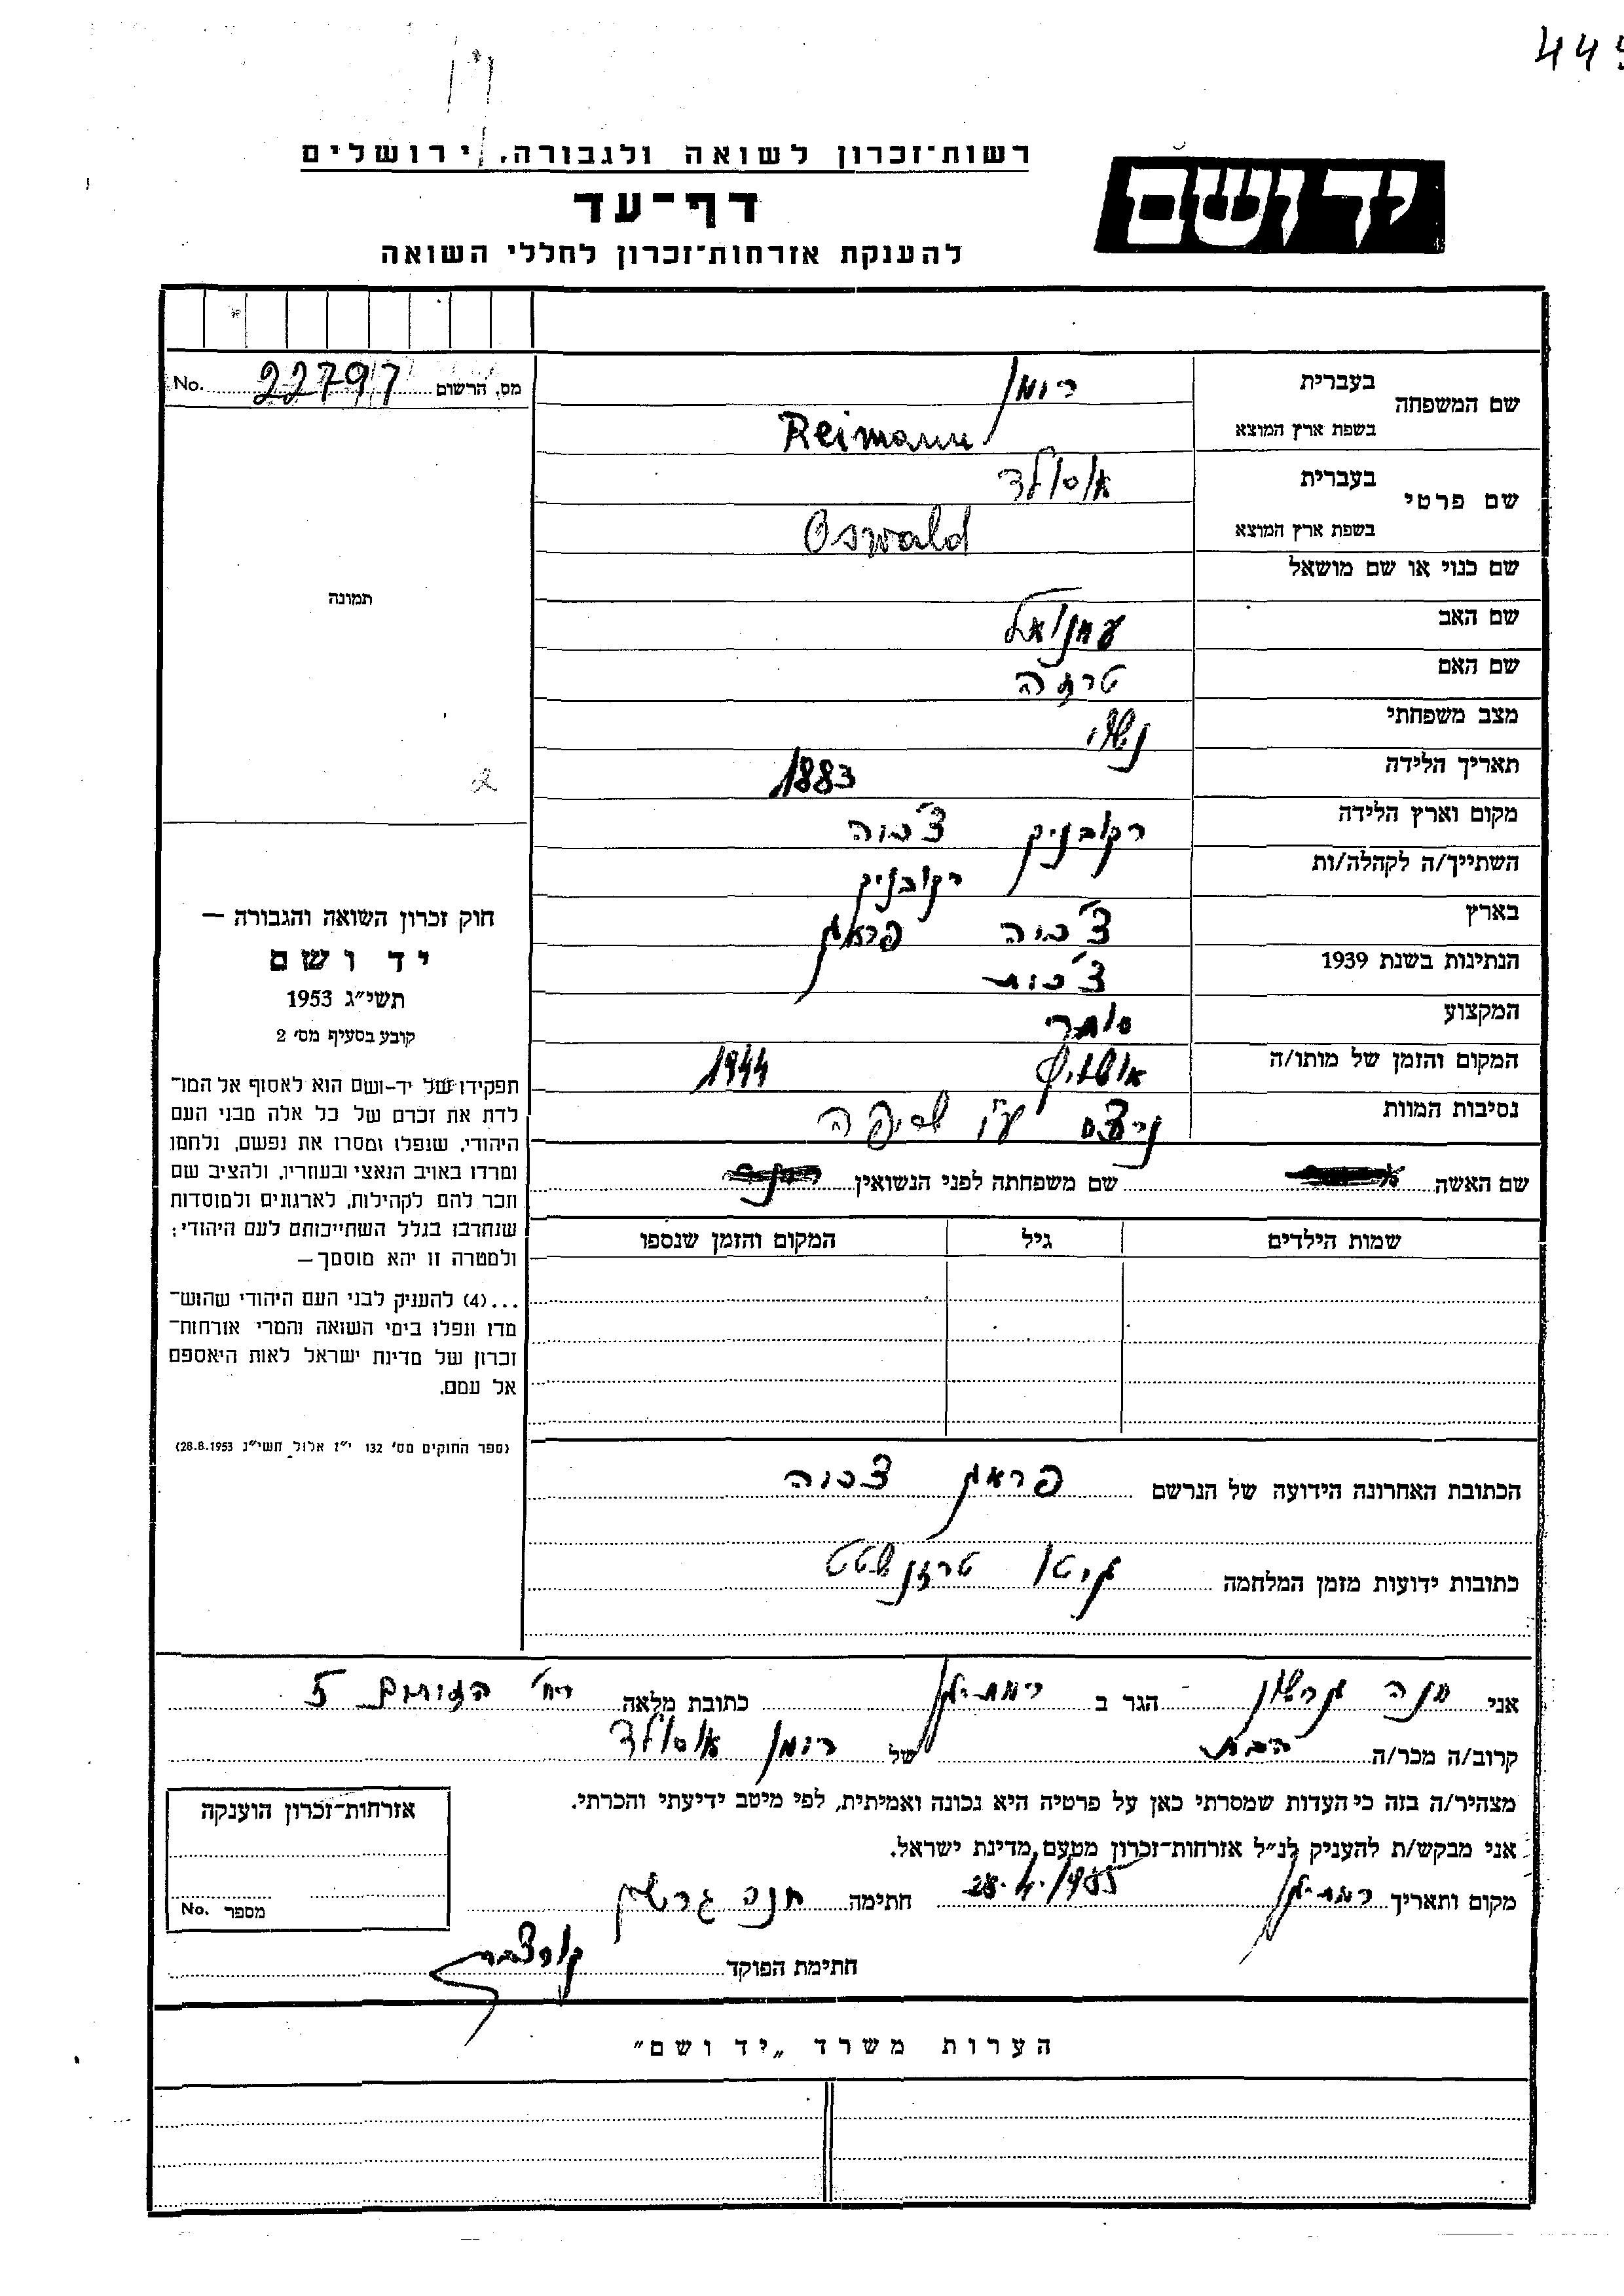 רשות־זכרון לשואה ולגבורה, ירושלים
יד ושם
דף־עד
להענקת אזרחות־זכרון לחללי השואה
מס. הרשום 22797 No.
שם המשפחה
בעברית רימן
בשפת ארץ המוצא Reimann
שם פרטי
בעברית אוסולד
בשפת ארץ המוצא Oswald
שם כנוי או שם מושאל
שם האב עמנואל
שם האם טרזה
מצב משפחתי נשוי
תאריך הלידה 1883
מקום וארץ הלידה רקובניק צ'כיה
השתייך/ה לקהלה/ות רקובניק
בארץ צ'כיה פראג
הנתינות בשנת 1939 צ'כית
המקצוע סוחר
המקום והזמן של מותו/ה אושויץ 1944
נסיבות המוות ניצם ע"י שריפה
שם האשה
שם משפחתה לפני הנשואין
שמות הילדים גיל המקום והזמן שנספו
תמונה
חוק זכרון השואה והגבורה —
יד ושם
תשי״ג 1953
קובע בסעיף מס׳ 2
תפקידו של יד-ושם הוא לאסוף אל המו־
לדת את זכרם של כל אלה מבני העם
היהודי, שנפלו ומסרו את נפשם, נלחמו
ומרדו באויב הנאצי ובעוזריו, ולהציב שם
וזכר להם לקהילות, לארגונים ולמוסדות
שנחרבו בגלל השתייכותם לעם היהודי;
ולמטרה זו יהא מוסמך —
...(4) להעניק לבני העם היהודי שהוש־
מדו ונפלו בימי השואה והמרי אזרחות־
זכרון של מדינת ישראל לאות היאספם
אל עמם.
(ספר החוקים מס׳ 132 י״ז אלול תשי״ג 28.8.1953)
הכתובת האחרונה הידועה של הנרשם פראג צכיה
כתובות ידועות מזמן המלחמה גיטו טרזנשטט
אני חנה גרשון הגר ב רמת-גן כתובת מלאה רח' 5
קרוב/ה מכר/ה הבת של רימן אוסולד
מצהיר/ה בזה כי העדות שמסרתי כאן על פרטיה היא נכונה ואמיתית, לפי מיטב ידיעתי והכרתי.
אני מבקש/ת להעניק לנ״ל אזרחות־זכרון מטעם מדינת ישראל.
מקום ותאריך רמת-גן 28.4.1955 חתימה חנה גרשון
חתימת הפוקד
אזרחות־זכרון הוענקה
מספר No.
הערות משרד „יד ושם״